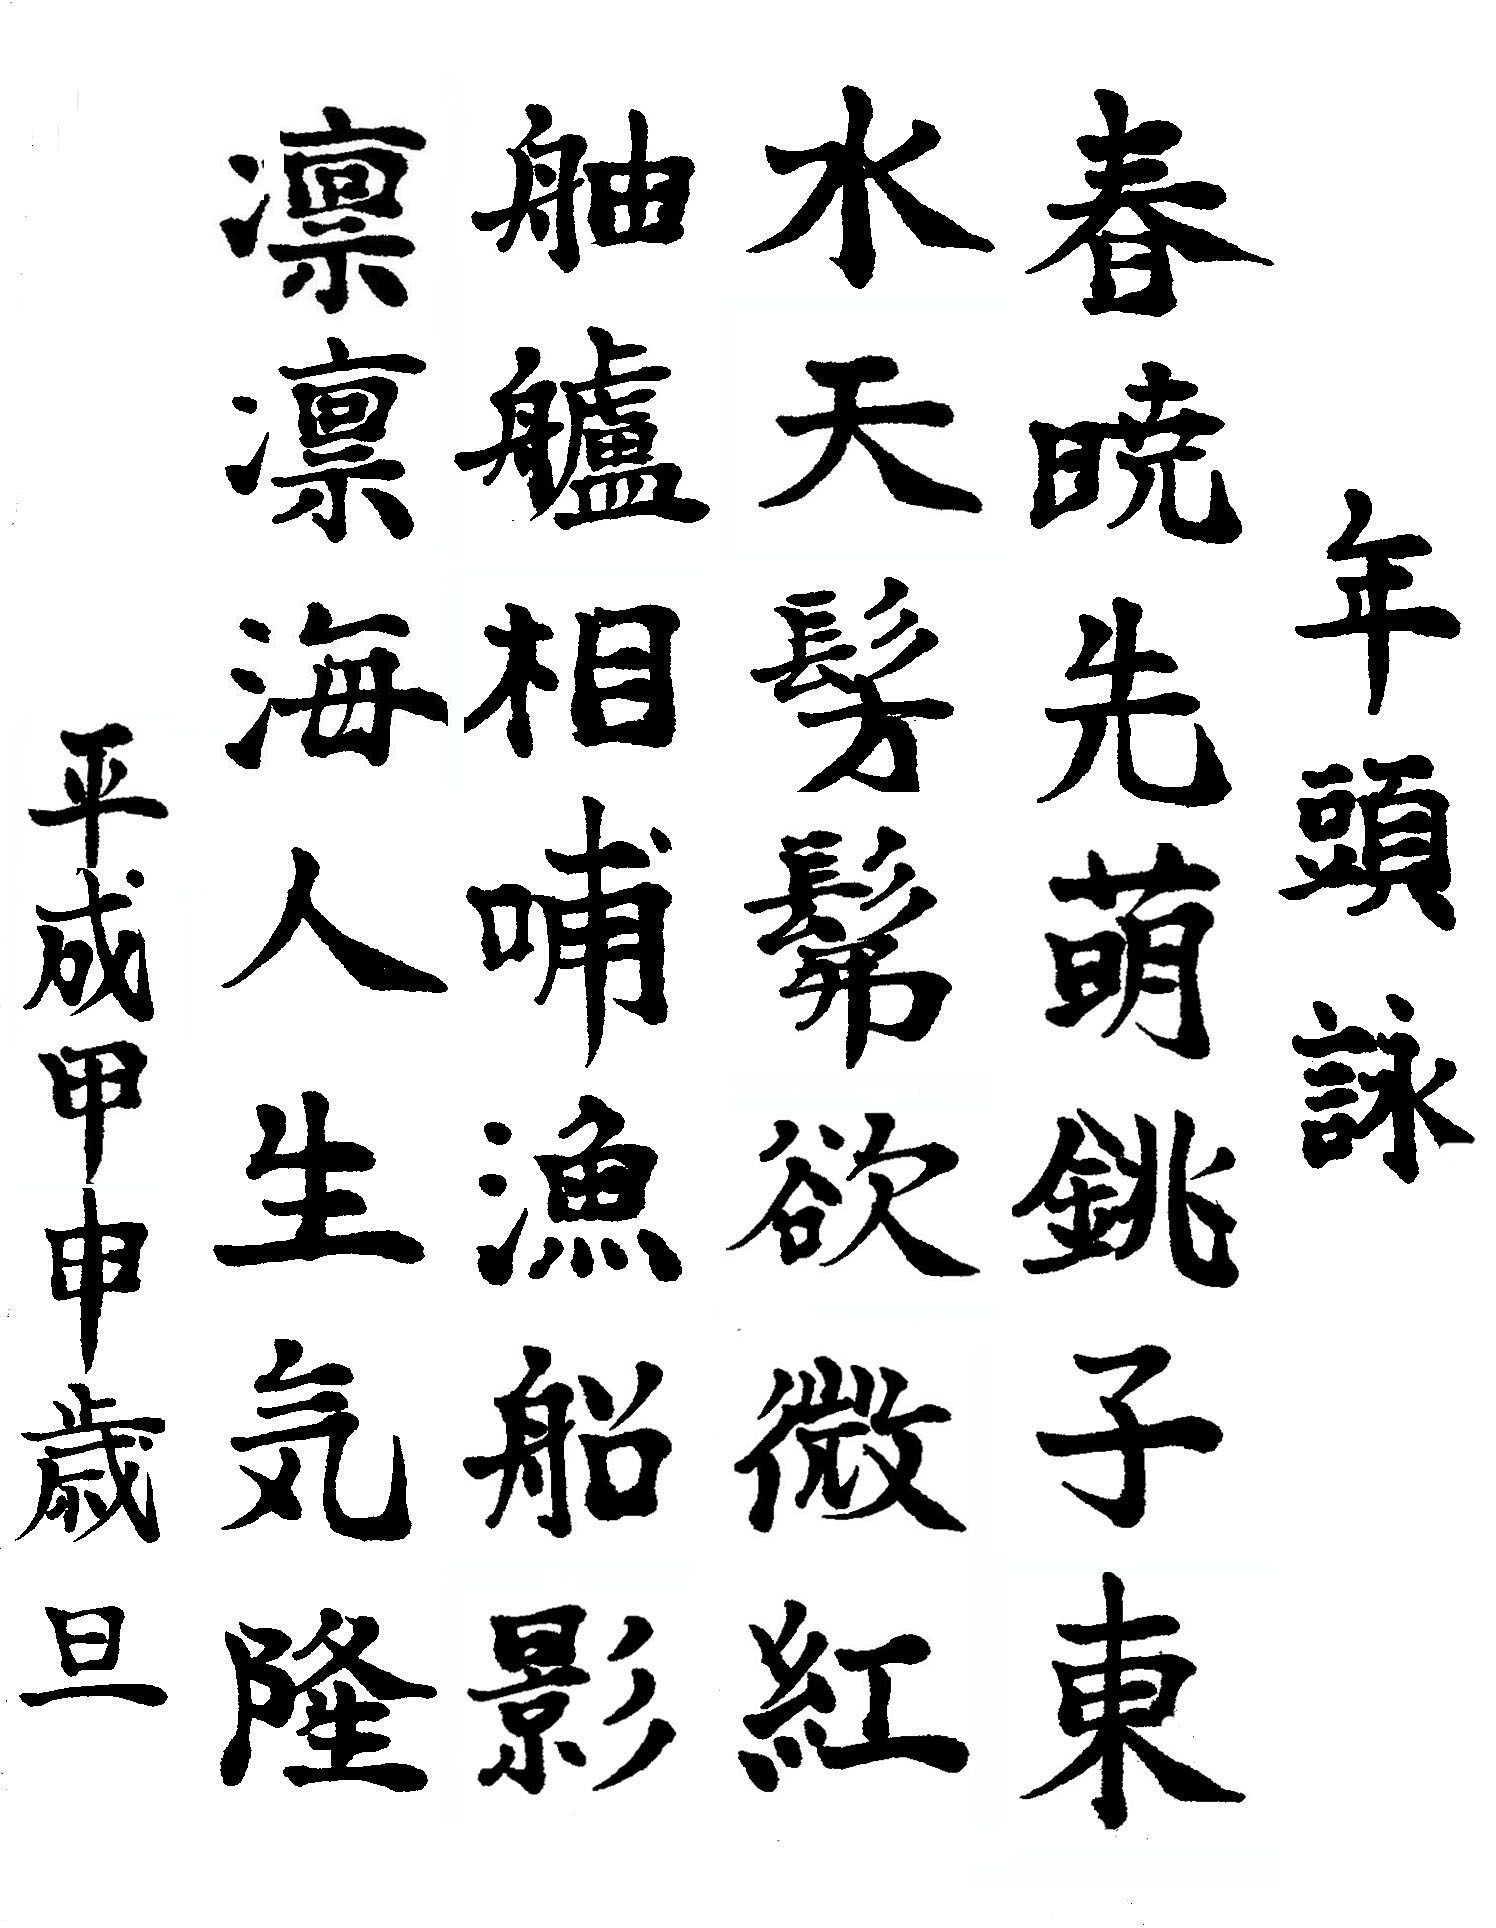 年頭詠
春暁先萌銚子東
水天髣髴欲微紅
舳艫相哺漁船影
凛凛海人生気隆
平成甲申歳旦